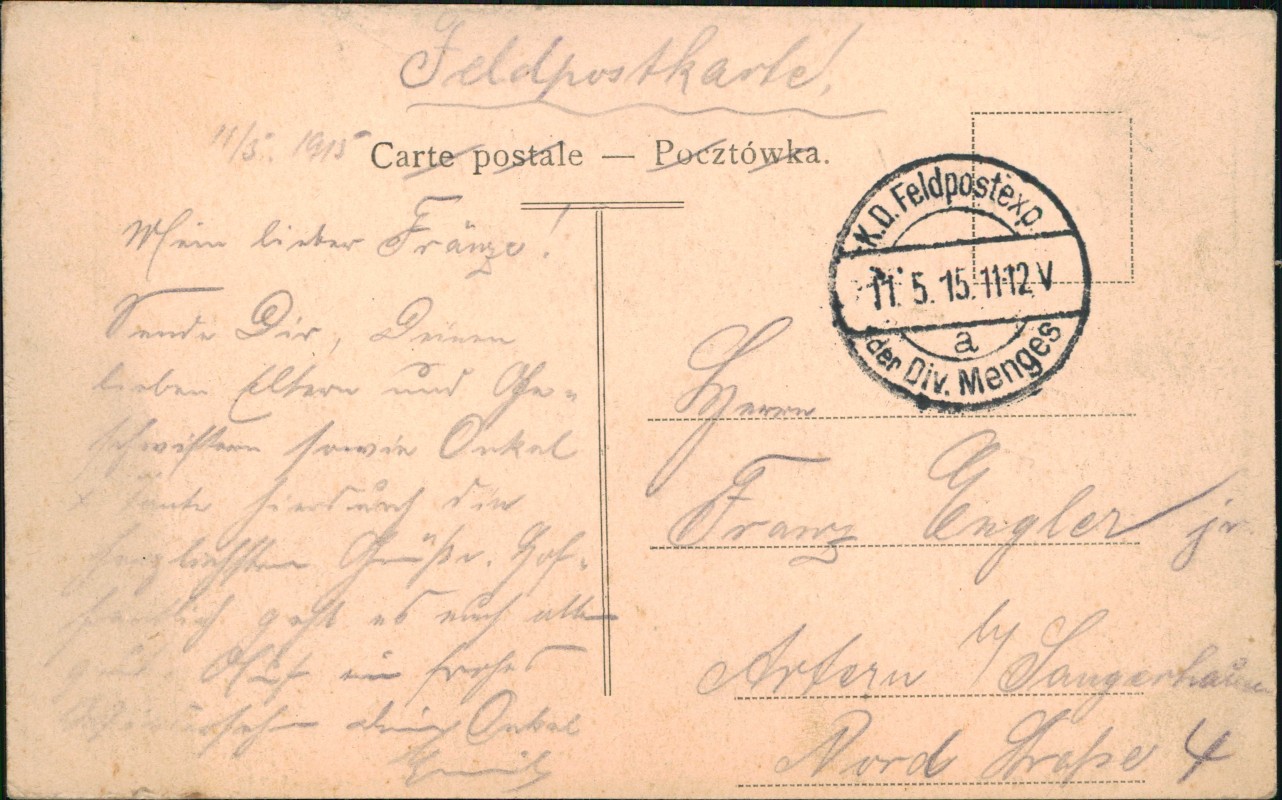 Feldpostkarte.
11/5. 1915
Carte postale — Pocztówka.
Mein lieber Fränze!
Sende Dir, Deinen
lieben Eltern und Ge-
schwistern sowie Onkel
+ Tante hierdurch die
herzlichsten Grüße. Hof-
fentlich geht es euch allen
gut. Auf ein frohes
Wiedersehn dein Onkel
K.D. Feldpostexp.
11. 5. 15. 11-12 V
a
der Div. Menges
Herrn
Franz Engler jr.
Artern b/ Sangerhausen
Nord Straße 4